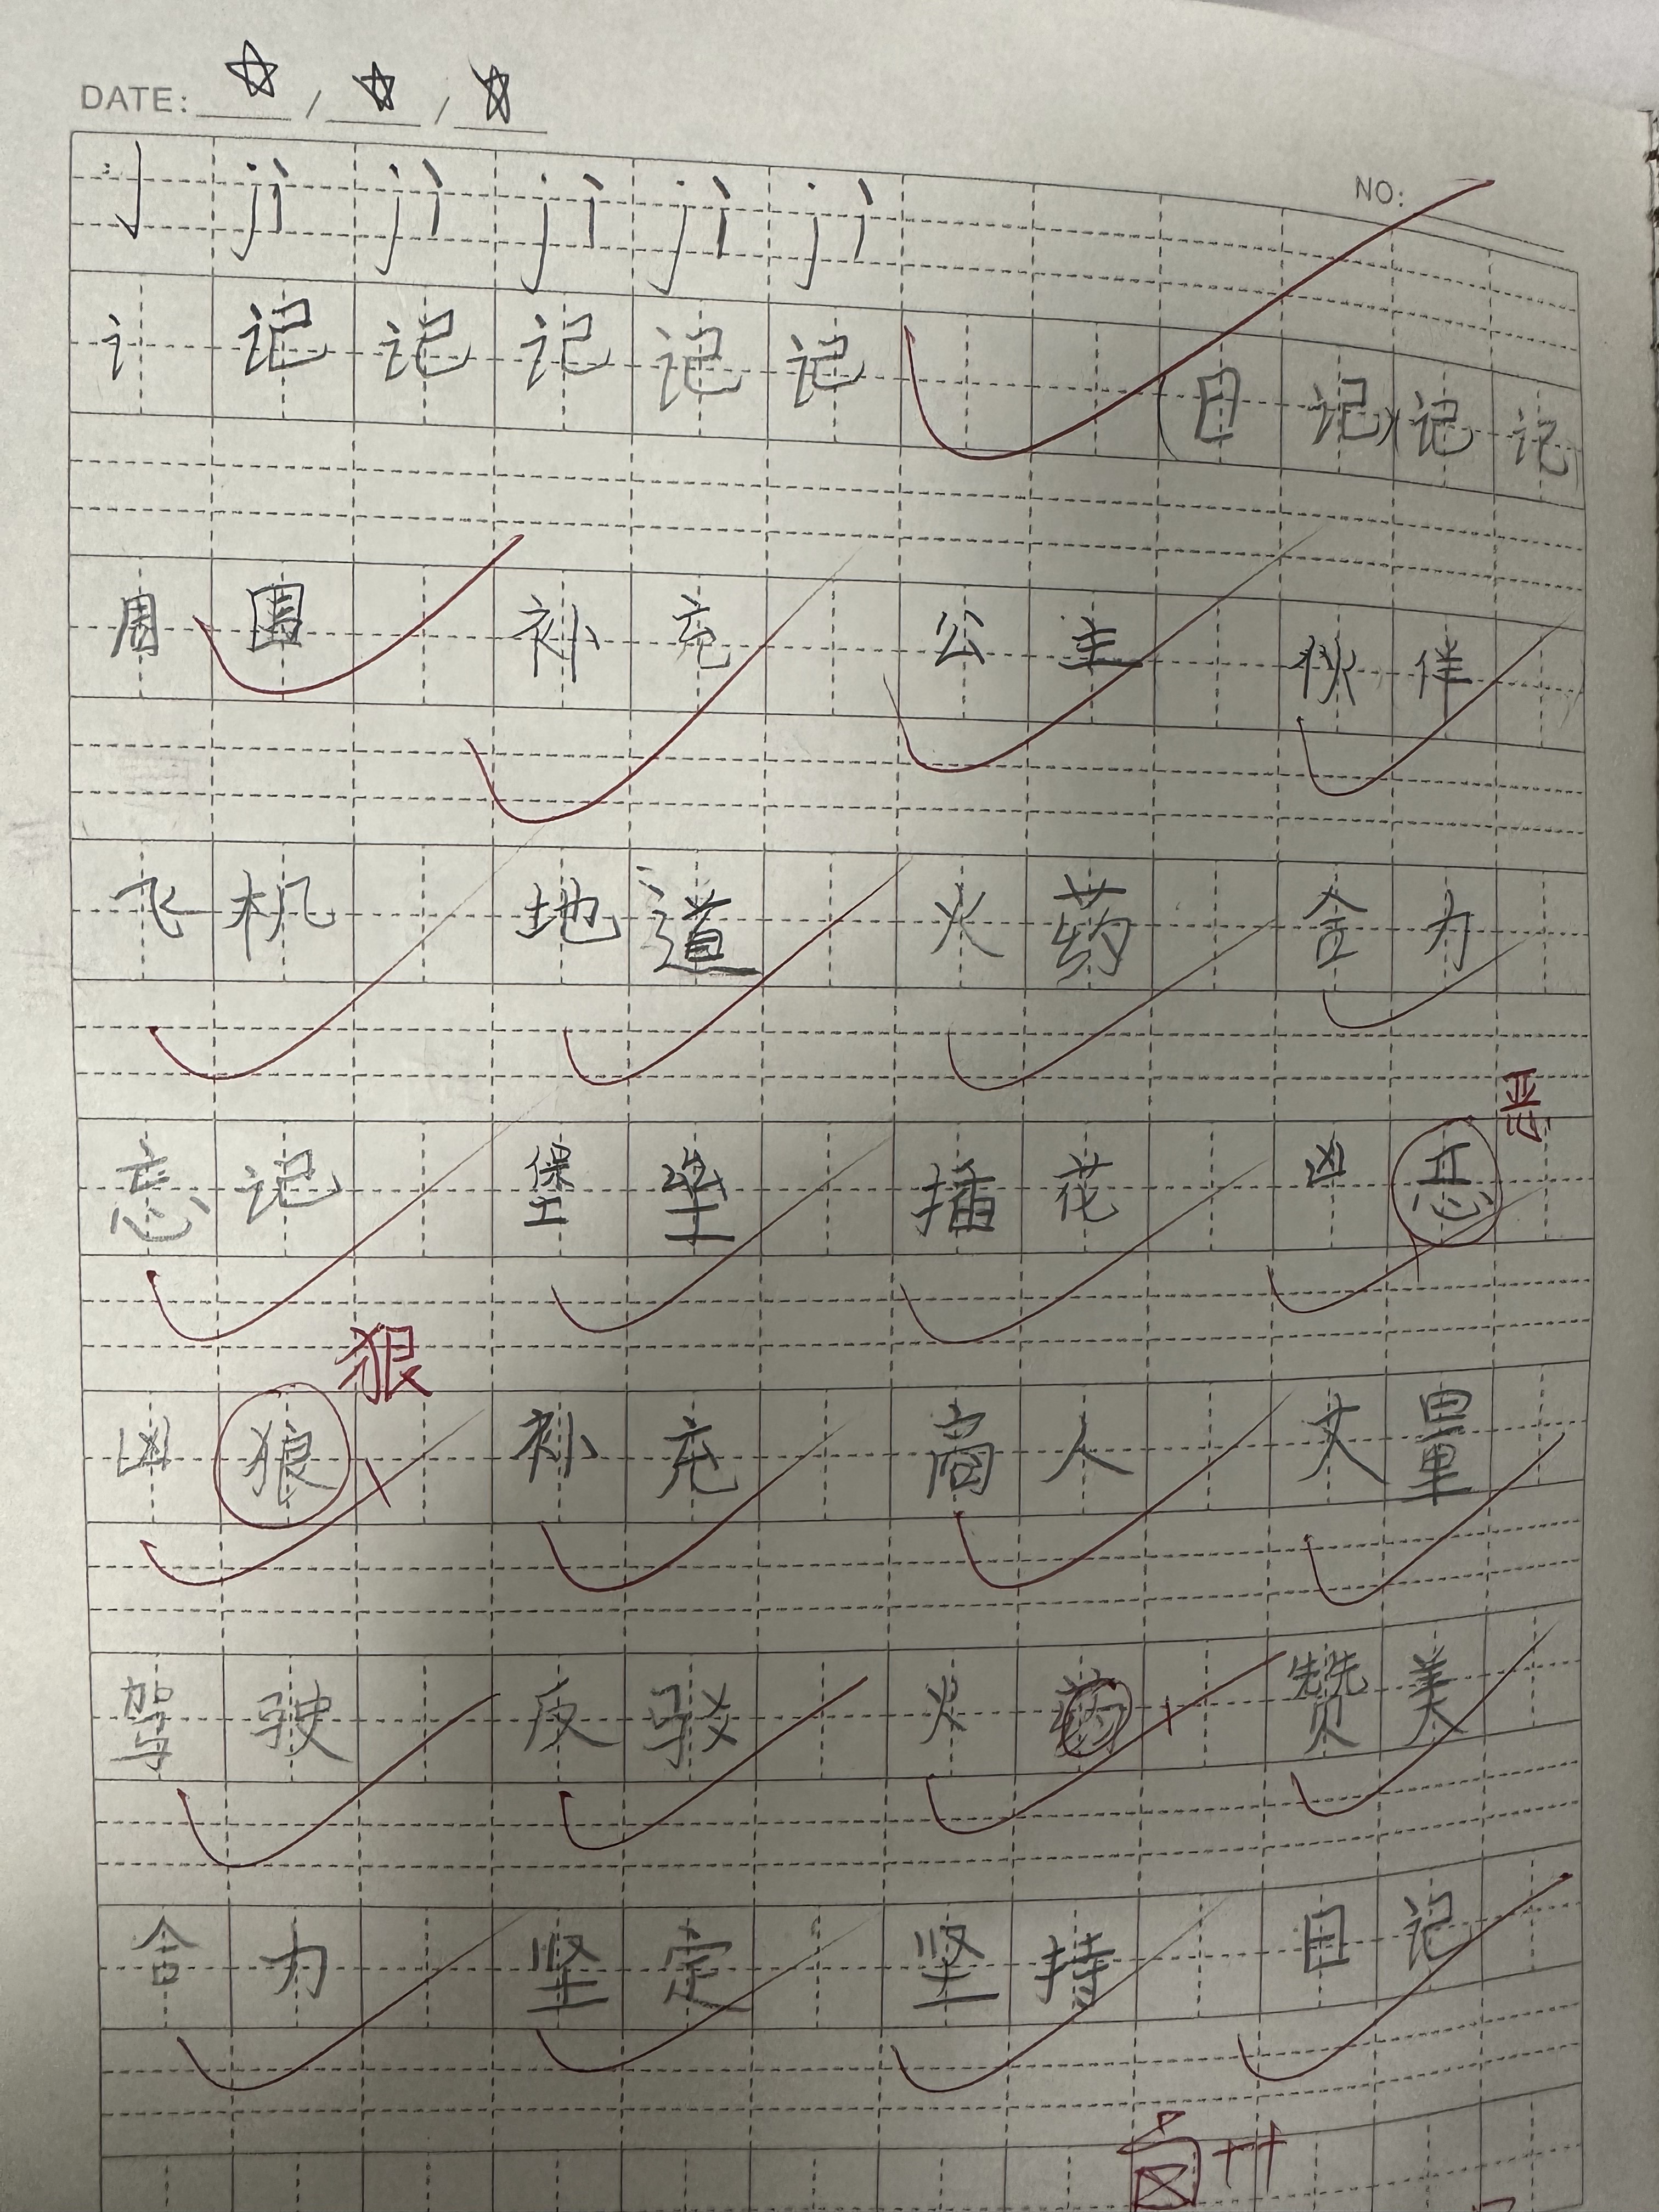 DATE: ☆ / ☆ / ☆
NO:
jì jì jì jì jì
讠 记 记 记 记 记 (日 记) (记 记)
周 围 补 充 公 主 伙 伴
飞 机 地 道 火 药 合 力
恶
忘 记 堡 垒 插 花 凶
狠
凶 狼 补 充 商 人 丈 量
驾 驶 反 驳 火 药 赞 美
合 力 坚 定 坚 持 日 记
艹